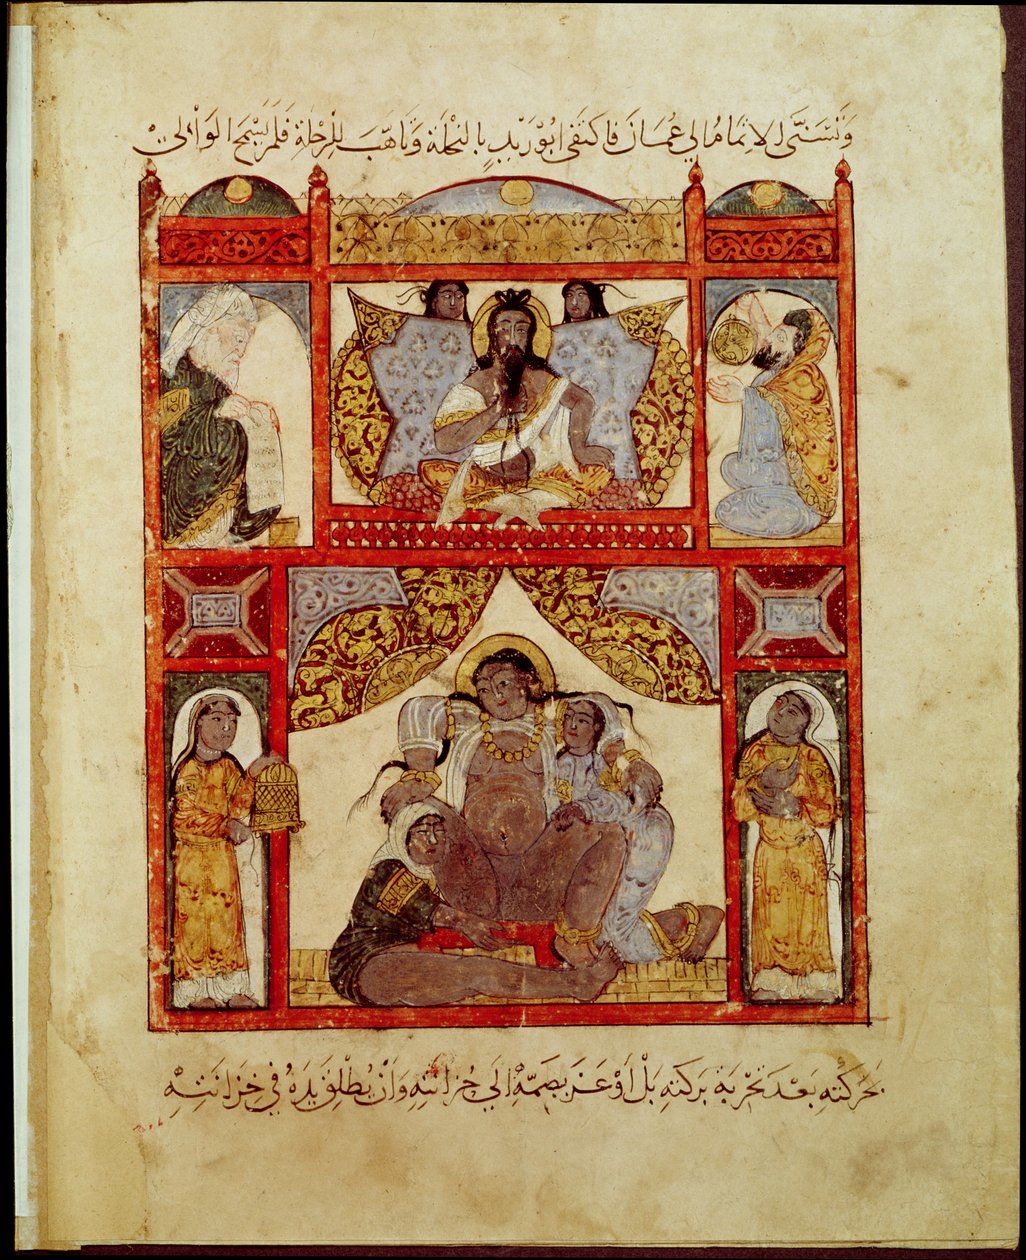 وَتَسَنَّى الاِتمَامُ اِلي عُمَانَ فَاكتَفَى ابُوْ زَيْدٍ بِالنِحْلَة وَتَاَهّبَ لِلرِحْلةِ فَلَمْ يَسْمَحِ الوَالِيْ
بحَرَكَتِهِ بَعْدَ تَجْربَةِ بَرَكتهِ بَلْ اَوْعَزَ بضَمّهِ اِلَي حُزانتِهِ وَاَنْ يُطْلِقَ يَدَهُ فِي خِزَانَتِهْ